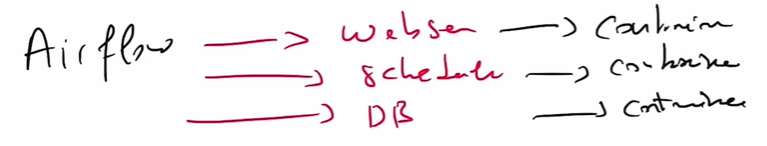 Airflow → webser → container
→ schedule → container
→ DB → container